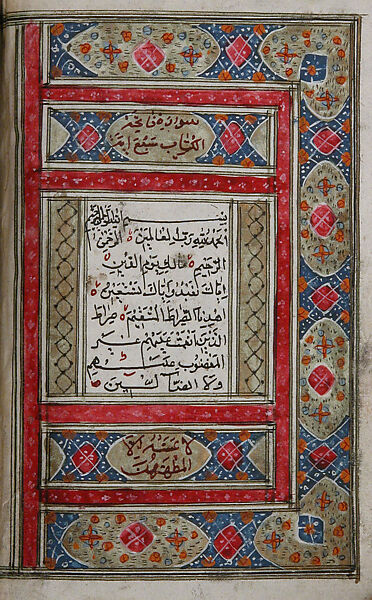 سورة فاتحة
الكتاب سبع آيات
بسم الله الرحمن الرحيم
الحمد لله رب العالمين الرحمن
الرحيم مالك يوم الدين
اياك نعبد واياك نستعين
اهدنا الصراط المستقيم صراط
الذين انعمت عليهم غير
المغضوب عليهم
ولا الضالين
لا يمسه الا
المطهرون